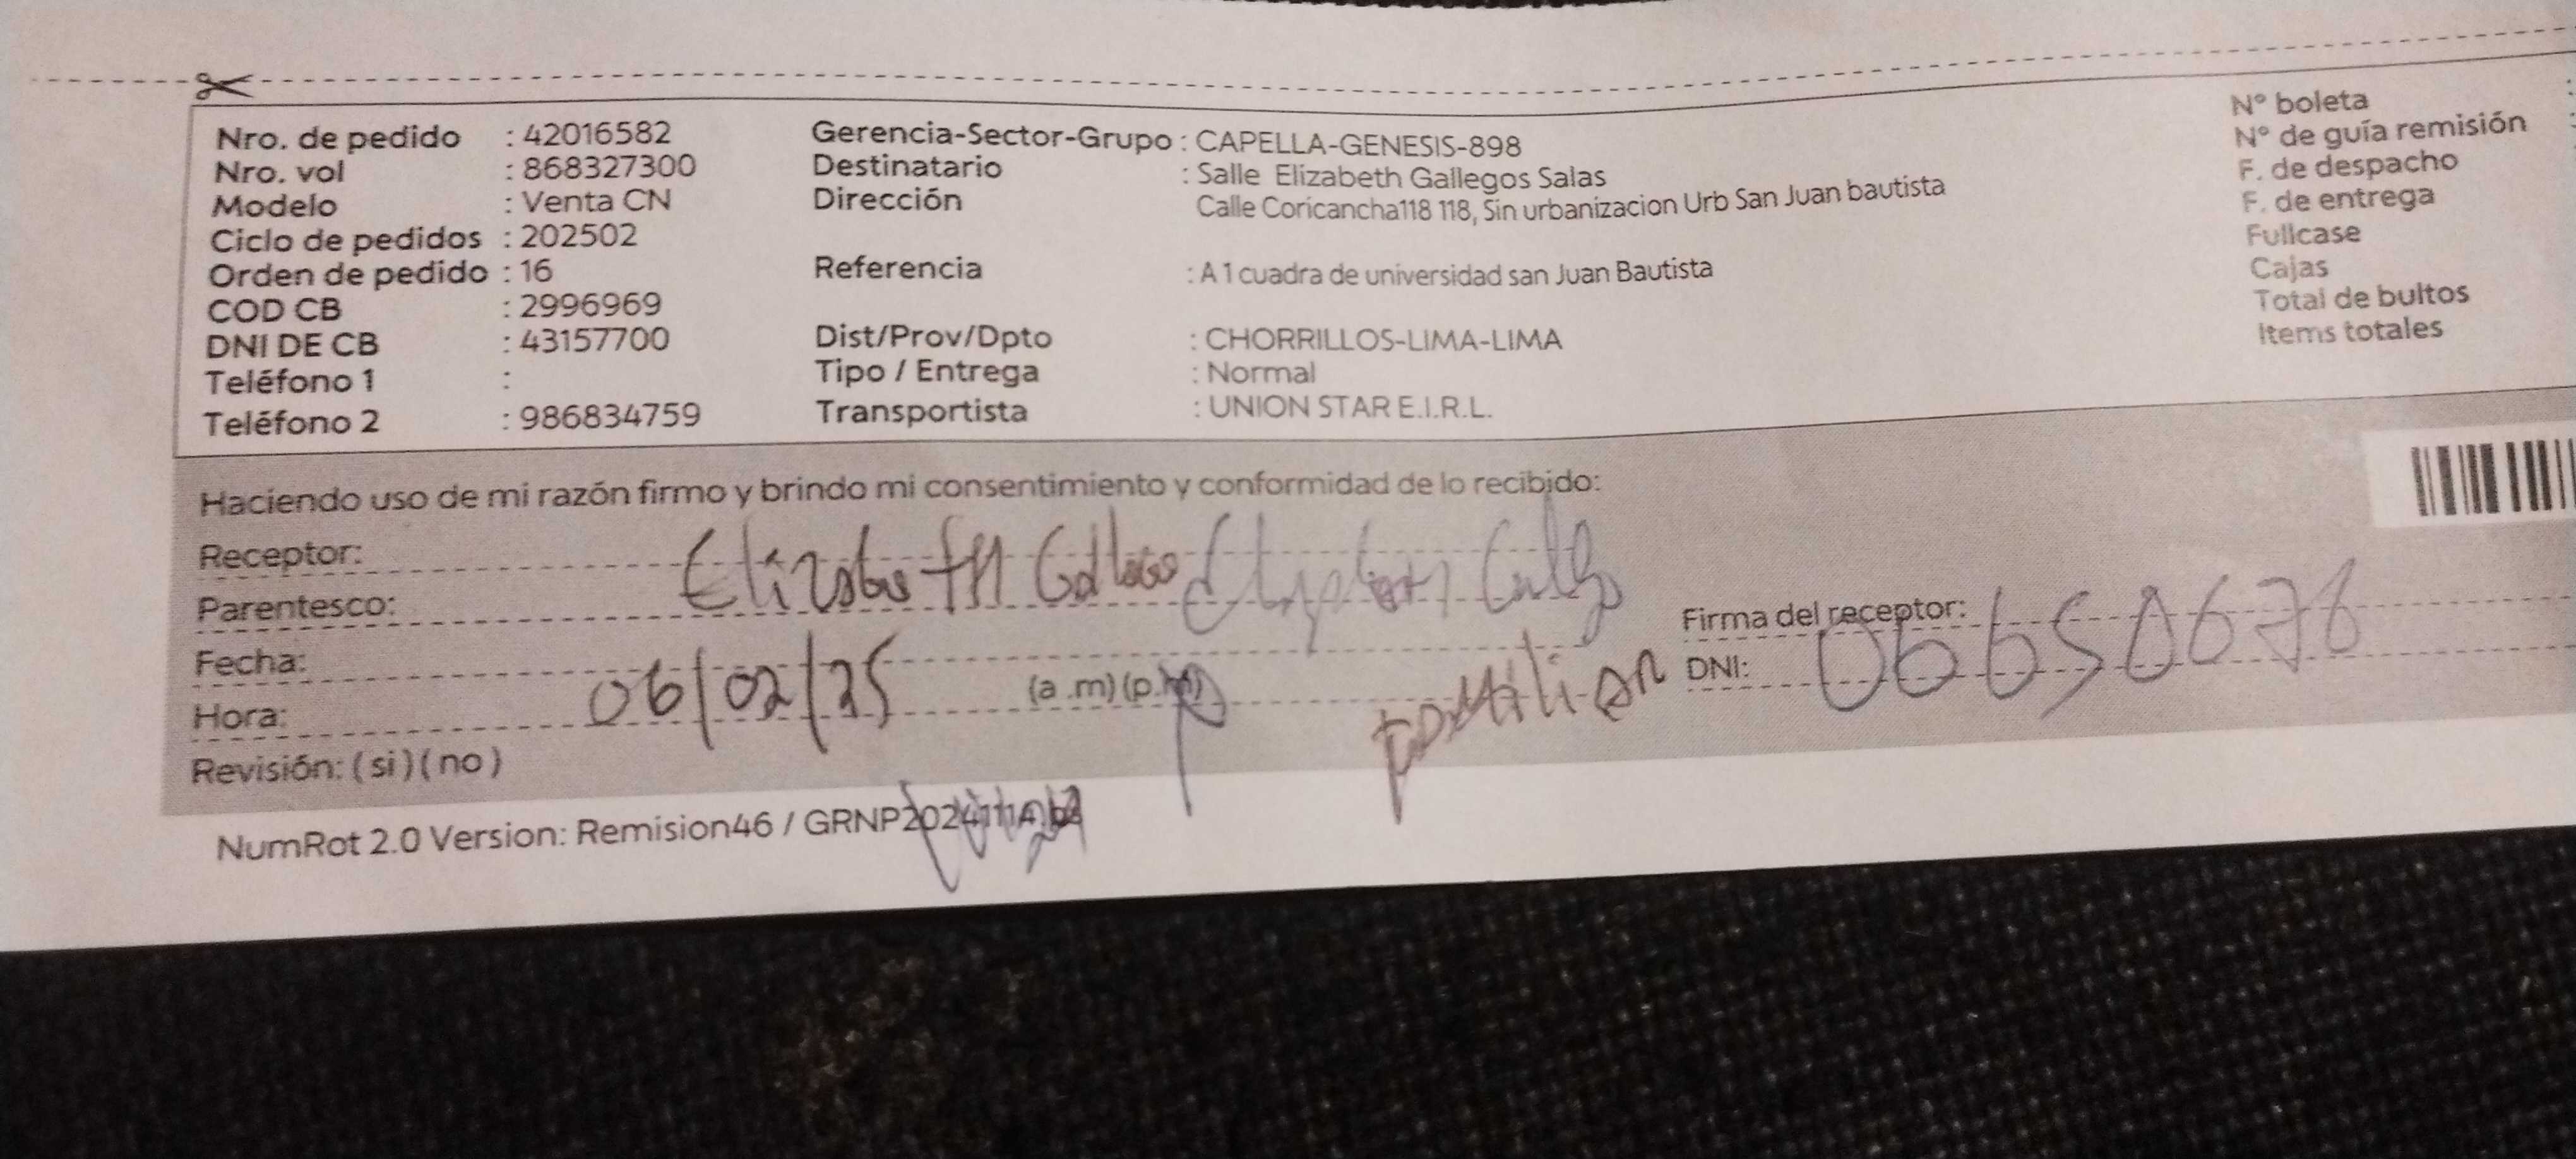 Nro. de pedido : 42016582
Nro. vol : 868327300
Modelo : Venta CN
Ciclo de pedidos : 202502
Orden de pedido : 16
COD CB : 2996969
DNI DE CB : 43157700
Teléfono 1 :
Teléfono 2 : 986834759
Gerencia-Sector-Grupo : CAPELLA-GENESIS-898
Destinatario : Salle Elizabeth Gallegos Salas
Dirección Calle Coricancha118 118, Sin urbanizacion Urb San Juan bautista
Referencia : A 1 cuadra de universidad san Juan Bautista
Dist/Prov/Dpto : CHORRILLOS-LIMA-LIMA
Tipo / Entrega : Normal
Transportista : UNION STAR E.I.R.L.
N° boleta :
N° de guía remisión :
F. de despacho
F. de entrega
Fullcase
Cajas
Total de bultos
Items totales
Haciendo uso de mi razón firmo y brindo mi consentimiento y conformidad de lo recibido:
Receptor:
Parentesco:
Fecha:
06/02/25
Hora: (a .m) (p.m)
Revisión: ( si ) ( no )
Firma del receptor:
DNI:
NumRot 2.0 Version: Remision46 /